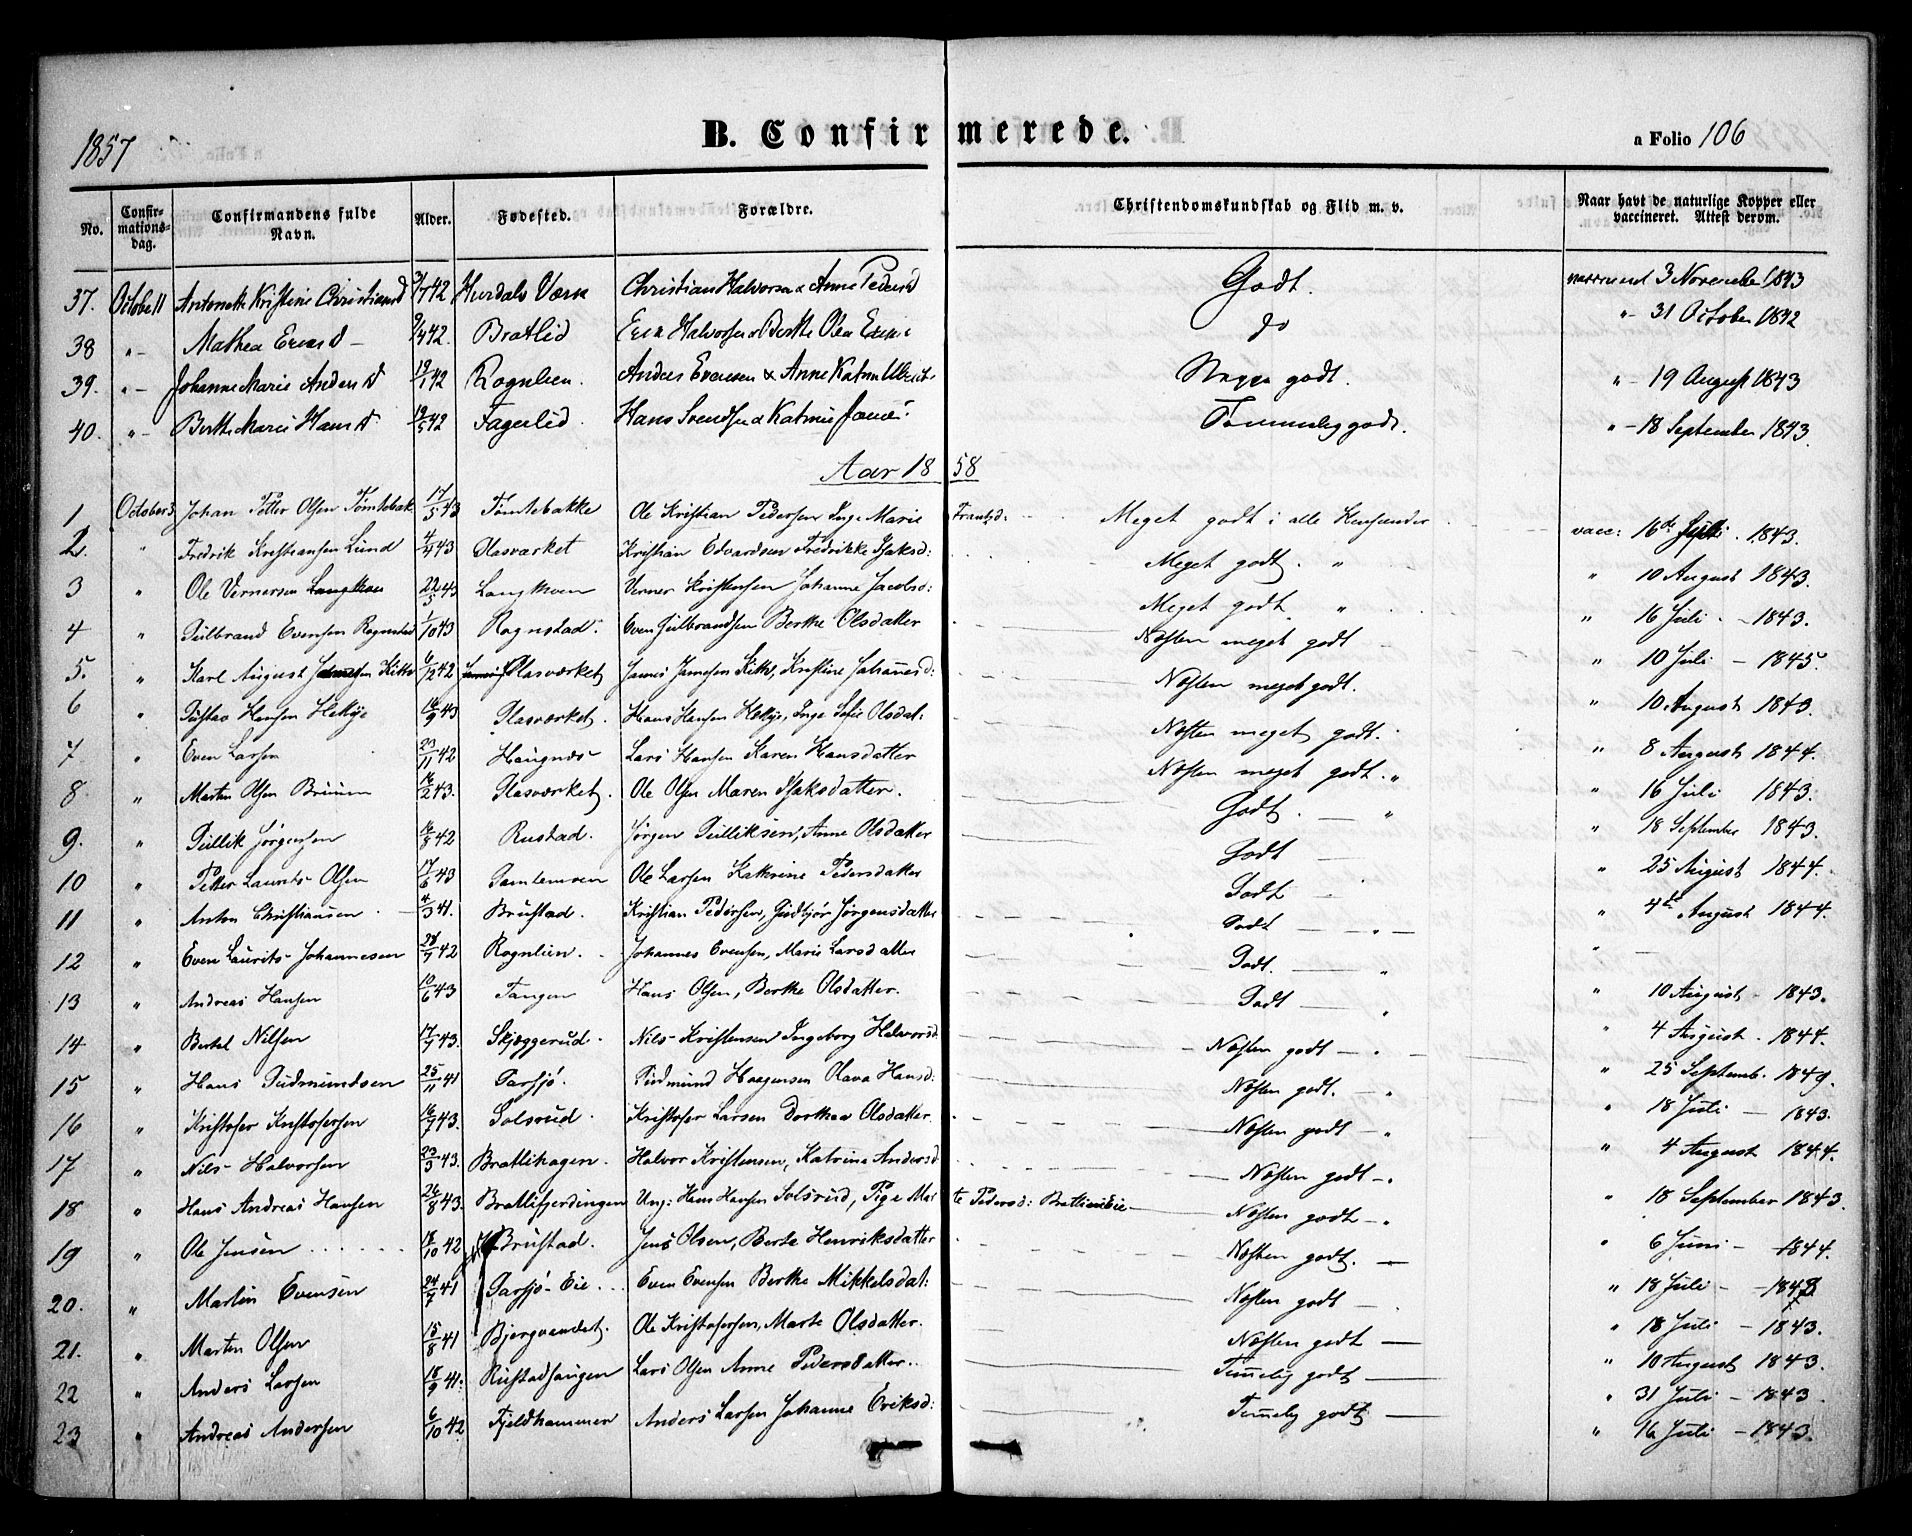 1857
B. Confirmerede.
a Folio 106
No. Confirmationsdag. Confirmandens fulde Navn. Alder. Fødested. Forældre. Christendomskundskab og Flid m. v. Naar havt de naturlige Kopper eller vaccineret. Attest derom.
37. Octobe 11 Antonette Kristine Christians D 3/7 42 Hurdals Værk Christian Halvorsen & Anne Peders D Godt. 3 November 1843
38 "- Mathea Erics D - 9/4 42. Bratlid Halvorsen & Berthe Olea do "- 31 October 1842
39. "- Johanne Marie Anders D 19/1 42 Rognlien. Anders Evensen & Anne godt. "- 19 August 1843
40. "- Berthe Marie Hans D 19/5 42 Fagerlid Hans Svendsen & Temmelig godt. "- 18 September 1843.
Aar 1858
1 October 3 Johan Petter Olsen Tømtebak 17/5 43 Tømtebakke Ole Kristian Pedersen Inge Marie Frantzd: Meget godt i alle Henseender vacc: 16de Juli . 1843.
2. " Fredrik Kristiansen Lund 4/4 43 Glasværket Kristian Edvardsen Fredrikke Isaksd: Meget godt. " " 10 August 1843.
3 " Ole Vernersen 22/5 43 Verner Kristensen Johanne Jacobsd: Meget godt. " " 16 Juli - 1843.
4 " Gulbrand Evensen Rognstad 1/10 43 Rognstad. Even Gulbrandsen Berthe Olsdatter Næsten meget godt " 10 Juli - 1845.
5. " Karl August Jamesen Kittel 6/12 42 Glasværket James Jamesen Kittel, Kristine Johannesd: Næsten meget godt. " 10 August 1843.
6 " Gustav Hansen 16/9 43 Glasværket. Hans Hansen Inge Sofie Olsdat: Næsten meget godt. " 8 August 1844.
7 " Even Larsen 23/11 42 Haugnæs Lars Hansen Karen Hansdatter Næsten meget godt. " " 16 Juli 1843.
8. " Martin Olsen Bruun 16/2 43. Glasværket. Ole Olsen Maren Isaksdatter. Godt. " " 18 September 1843.
9. " Gullik Jørgensen 16/8 42 Rustad. Jørgen Gulliksen, Anne Olsdatter Godt " 25 August 1844.
10 " Petter Laurits Olsen 17/6 43 Ole Larsen Katerine Pedersdatter Godt " 4de August 1844.
11 " Anton Christiansen 4/3 41. Brustad. Kristian Pedersen, Gudbjør Jørgensdatter Godt " "
12 " Even Laurits Johannesen 28/7 42 Rognlien. Johannes Evensen, Marie Larsdatter Godt. " " 10 August - 1843.
13 " Andreas Hansen 10/6 43 Tangen Hans Olsen, Berthe Olsdatter. Godt " " 4 August . 1844.
14 " Bertel Nilsen 17/7 43. Skjæggerud. Nils Kristensen Ingeborg Halvorsd. Næsten godt " " 25 Septemb. 1849.
15 " Hans Gudmundsen 25/11 41 Garsjø. Gudmund Haagensen Olava Hansd: Næsten godt. " " 18 Juli - 1843.
16 " Kristofer Kristofersen 16/7 43. Solsrud. Kristofer Larsen Dorthea Olsdatter. Næsten godt " " 4 August 1844.
17 " Nils Halvorsen 23/3 43. Bratlihagen. Halvor Kristensen, Katrine Andersd Næsten godt " " 18 September 1843.
18 " Hans Andreas Hansen 26/8 43. Bratlifjerdingen Ung: Hans Hansen Solsrud, Pige Marte Pedersd: Bratlieneie Næsten godt " " 6 Juni - 1844.
19 " Ole Jensen 18/10 42 Brustad. Jens Olsen, Berte Henriksdatter Næsten godt. " 18 Juli -
20. " Martin Evensen 24/7 41 Garsjø-Eie Even Evensen Berthe Mikkelsdat: Næsten godt " 18 Juli - 1843.
21. " Martin Olsen 15/8 41 Bjørgvandet. Ole Kristofersen, Marte Olsdatter. Næsten godt " 10 August 1843.
22 " Anders Larsen 18/9 41. Rustadhaugen Lars Olsen Anne Pedersdatter. Temmelig godt " 31 Juli - 1843.
23 " Andreas Andersen 6/10 42 Fjeldhammer Anders Larsen Johanne Eriksd: Temmelig godt " 16 Juli - 1843.